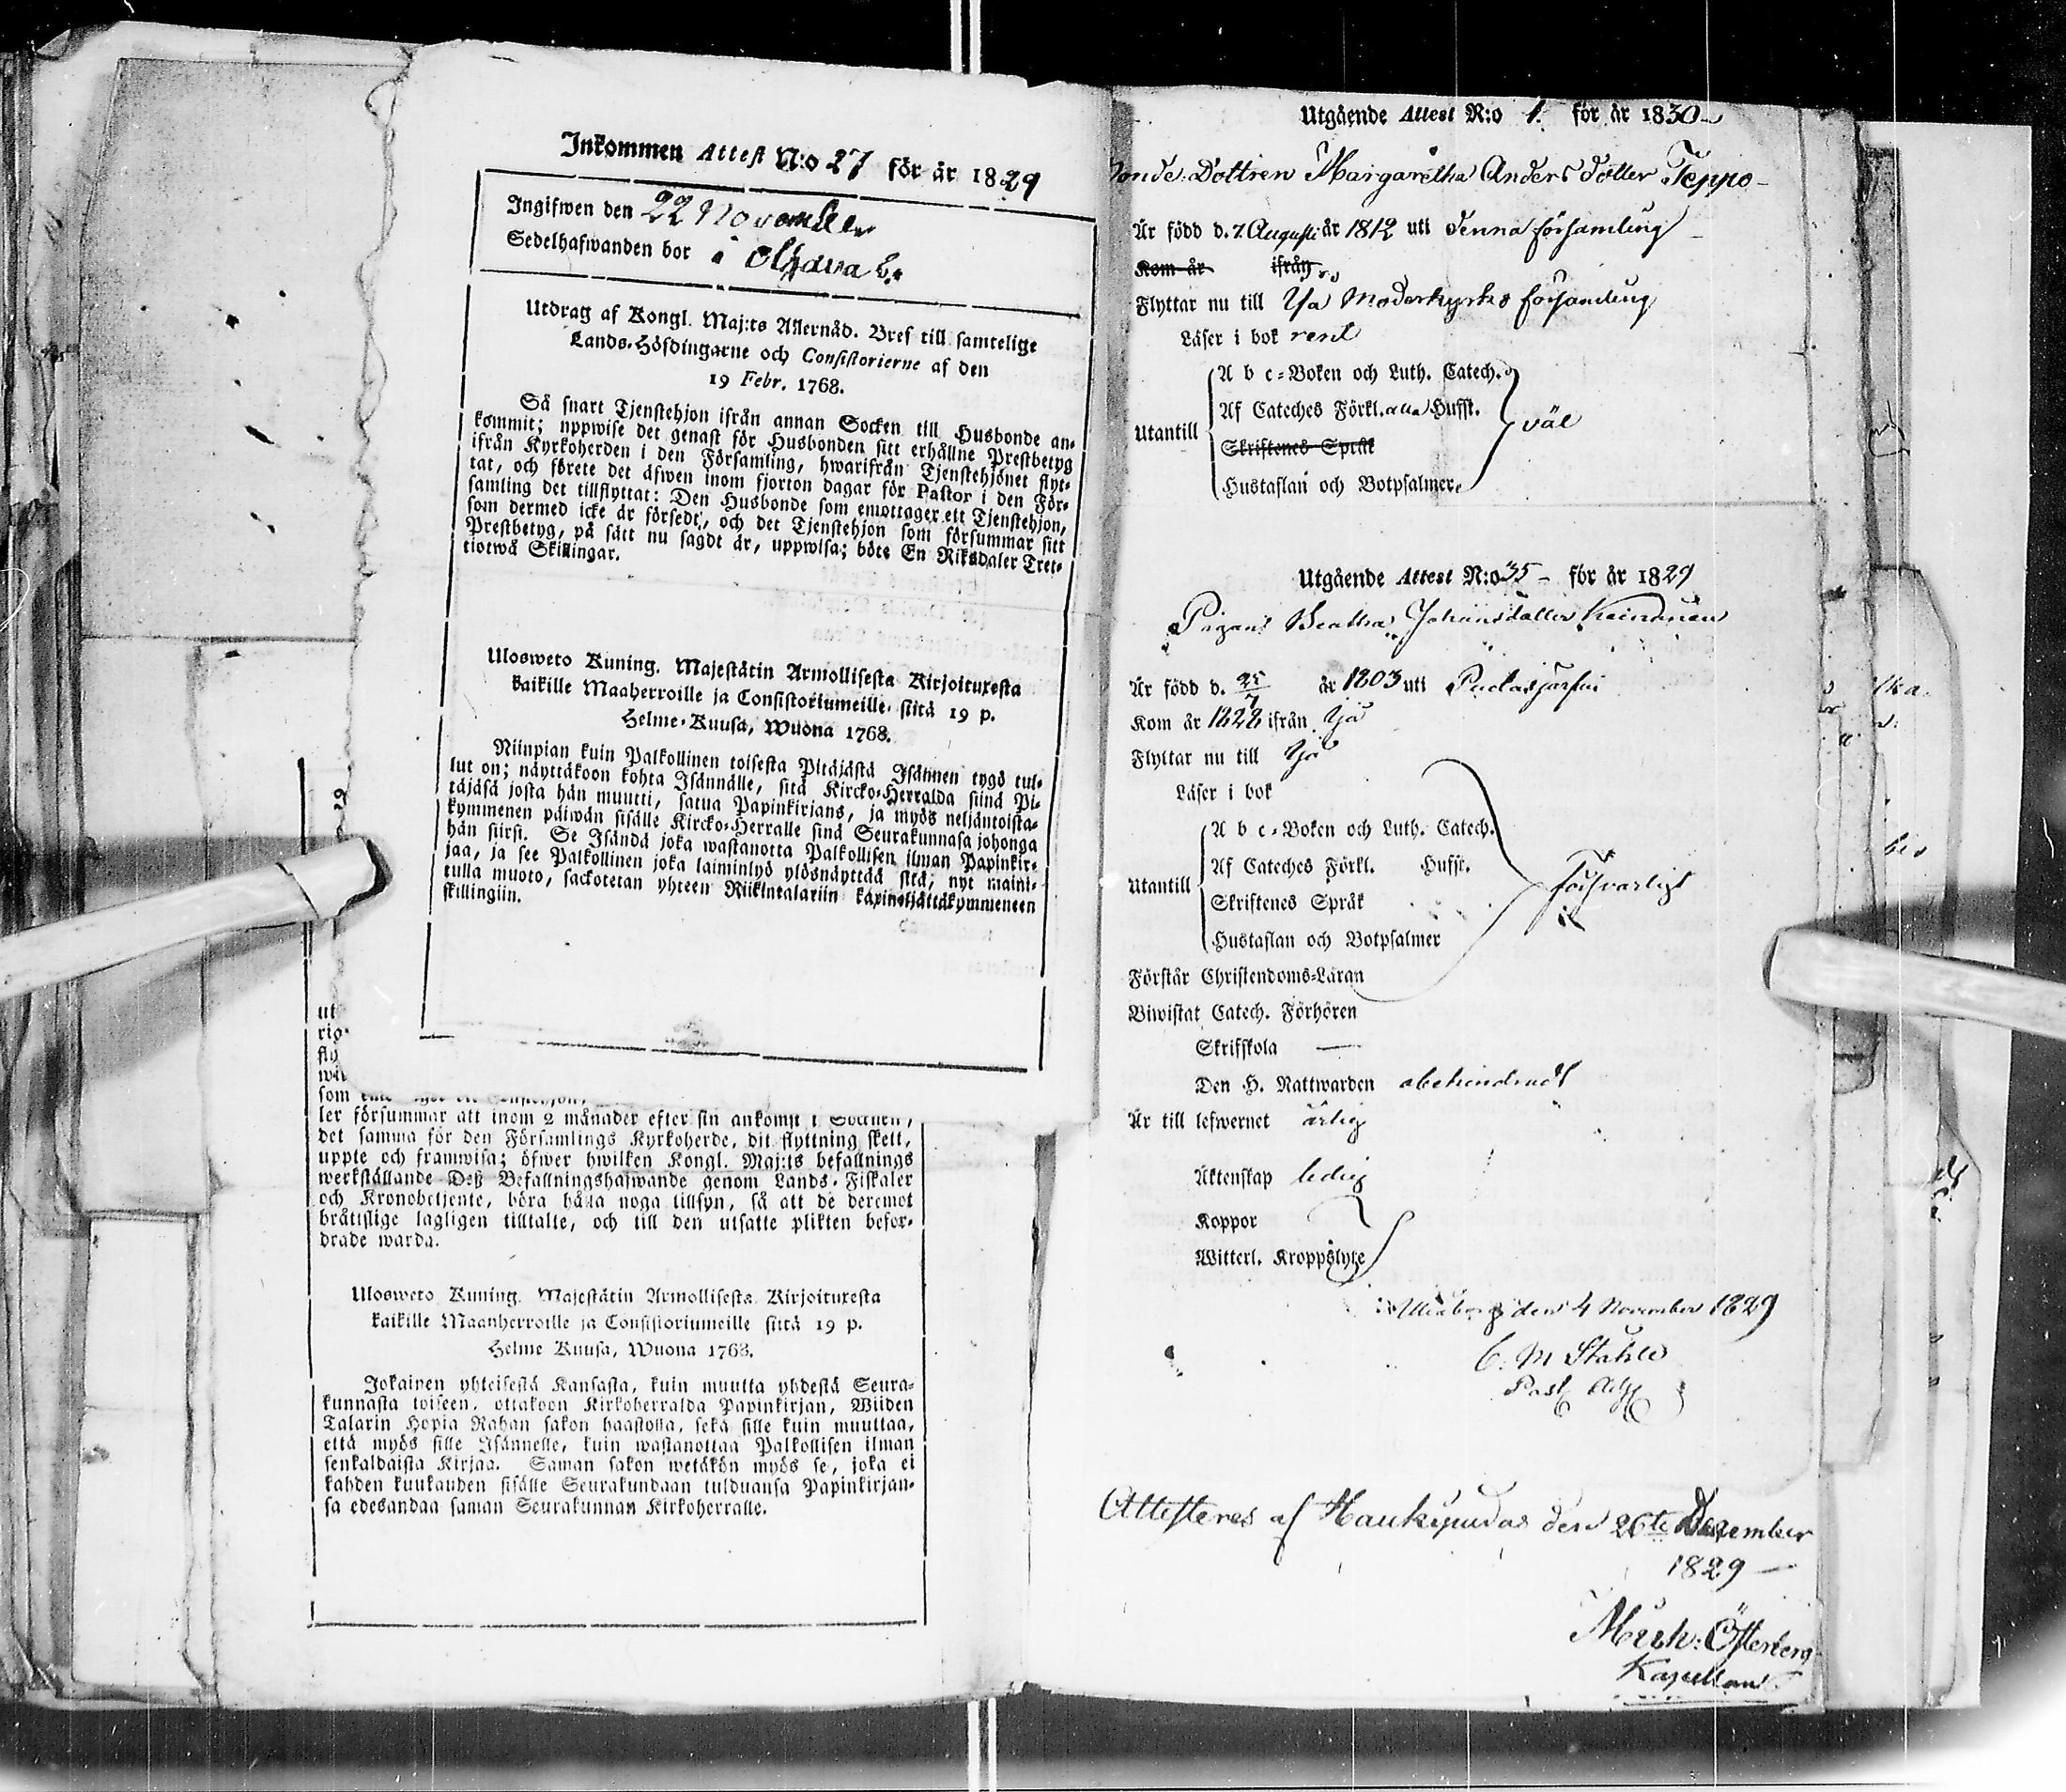 Inkommen Attest N:o 27 för år 1829
Ingifwen den 22 November
Sedelhafwanden bor i Olhava by
Utdrag af Kongl. Maj:ts Allernåd. Bref till samtelige
Lands-Höfdingarne och Consistorierne af den
19 Febr. 1768.
Så snart Tjenstehjon ifrån annan Socken till Husbonde an-
kommit; uppwise det genast för Husbonden sitt erhållne Prestbetyg
ifrån Kyrkoherden i den Församling, hwarifrån Tjenstehjonet flyt-
tat, och förete det äfwen inom fjorton dagar för Pastor i den För-
samling det tillflyttat: Den Husbonde som emottager ett Tjenstehjon,
som dermed icke är försedt, och det Tjenstehjon som försummar sitt
Prestbetyg, på sätt nu sagdt är, uppwisa; böte En Riksdaler Tret-
tiotwå Skillingar.
Ulosweto Kuning. Majestätin Armollisesta Kirjoituxesta
kaikille Maaherroille ja Consistoriumeille, siitä 19 p.
Helme-Kuusa, Wuona 1768.
Niinpian kuin Palkollinen toisesta Pitäjästä Isännen tygö tul-
lut on; näyttäkoon kohta Isännälle, sitä Kircko-Herralda siinä Pi-
täjäsä josta hän muutti, satua Papinkirjans, ja myös neljäntoista-
kymmenen päiwän sisälle Kircko-Herralle siinä Seurakunnasa johonga
hän siirsi. Se Isändä joka wastanotta Palkollisen ilman Papinkir-
jaa, ja see Palkollinen joka laiminlyö ylösnäyttää sitä; nyt maini-
tulla muoto, sackotetan yhteen Riikintalariin kaxineljättäkymmeneen
skillingiin.
ut
rig
fly
wil
som
ler försummar att inom 2 månader efter sin ankomst i Socknen,
det samma för den Församlings Kyrkoherde, dit flyttning skett,
uppte och framwisa; öfwer hwilken Kongl. Maj:ts befallnings
werkställande Deß Befallningshafwande genom Lands-Fiskaler
och Kronobetjente, böra hålla noga tillsyn, så att de deremot
bråttslige lagligen tilltalte, och till den utsatte plikten befor-
drade warda.
Ulosweto Kuning. Majestätin Armollisesta Kirjoituxesta
kaikille Maanherroille ja Consistoriumeille siitä 19 p.
Helme Kuusa, Wuona 1768.
Jokainen yhteisestä Kansasta, kuin muutta yhdestä Seura-
kunnasta toiseen, ottakoon Kirkoherralda Papinkirjan, Wiiden
Talarin Hopia Rahan sakon haastolla, sekä sille kuin muuttaa,
että myös sille Isännelle, kuin wastanottaa Palkollisen ilman
senkaldaista Kirjaa. Saman sakon wetäkön myös se, joka ei
kahden kuukauden sisälle Seurakundaan tulduansa Papinkirjan-
sa edesandaa saman Seurakunnan Kirkoherralle.
Utgående Attest N:o 1. för år 1830
Bonde. Dottren Margaretha Anders dotter Teppo
Är född d. 7. Augusti år 1812 uti denna församling
Kom år ifrån
Flyttar nu till Ijo Moderkyrko församling
Läser i bok rent
A b c-Boken och Luth. Catech.
Af Cateches Förkl. alla Husst.
Utantill väl
Skriftenes Språk
Hustaflan och Botpsalmer
Utgående Attest N:o 35 för år 1829
Pigan Beatha Johansdotter Keinänen
Är född d. 25/7 år 1803 uti Pudasjärfvi
Kom år 1828 ifrån Ijo
Flyttar nu till Ijo
Läser i bok
A b c-Boken och Luth. Catech.
Af Cateches Förkl. Husst.
Utantill Försvarligt
Skriftenes Språk
Hustaflan och Botpsalmer
Förstår Christendoms-Läran
Biwistat Catech. Förhören
Skrifskola
Den H. Nattwarden obehindradt
Är till lefwernet ärlig
Äktenskap ledig
Koppor
Witterl. Kroppslyte
Uleåborg den 4 November 1829
C. M Ståhle
Past. Adj
Attesteras af Haukipudas den 26te December
1829
Mich: Österberg
Kapellan